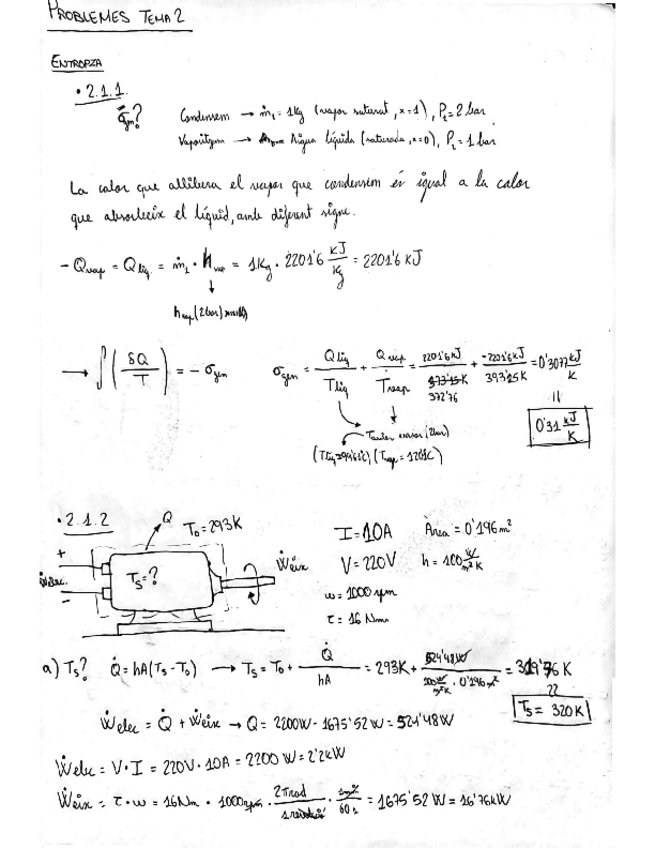 PROBLEMES TEMA 2
ENTROPIA
• 2.1.1.
σgen? Condensem → m₁ = 1Kg (vapor saturat, x=1), P₁ = 2 bar
Vaporitzem → Aigua líquida (saturada, x=0), P₂ = 1 bar
La calor que allibera el vapor que condensem és igual a la calor
que absorbeix el líquid, amb diferent signe.
- Qvap = Qliq = m₁ · hvap = 1Kg · 2201'6 kJ/Kg = 2201'6 KJ
hvap (2bar)
→ ∫(δQ/T) = - σgen σgen = Qliq/Tliq + Qvap/Tvap = 2201'6 KJ/372'76 + -2201'6 KJ/393'15K = 0'3077 KJ/K
=
0'31 KJ/K
(2bar)
• 2.1.2 Q T₀ = 293K I = 10A Àrea = 0'196 m²
+ Ẇelec. - Ts = ? Ẇeix V = 220V h = 100 W/m²K
ω = 1000 rpm
τ = 16 Nm
a) Ts? Q̇ = hA(Ts - T₀) → Ts = T₀ + Q̇/hA = 293K + 524'48W/(100 W/m²K · 0'196 m²) = 319'76 K
Ts = 320K
Ẇelec = Q̇ + Ẇeix → Q = 2200W - 1675'52W = 524'48W
Ẇelec = V·I = 220V · 10A = 2200 W = 2'2kW
Ẇeix = τ·ω = 16Nm · 1000rpm · 2πrad/1 · 1/60s = 1675'52 W = 16'76kW